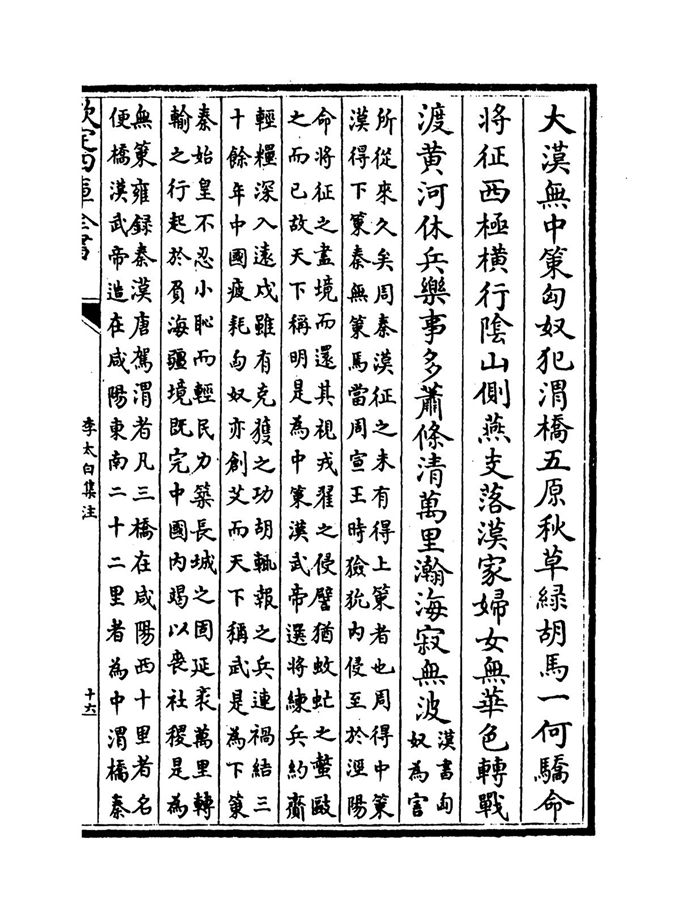 大漢無中策匈奴犯渭橋五原秋草緑胡馬一何驕命
將征西極横行隂山側燕支落漢家婦女無華色轉戰
渡黄河休兵樂事多蕭條清萬里瀚海寂無波
漢書匈
奴為害
所從來久矣周秦漢征之未有得上策者也周得中策
漢得下策秦無策焉當周宣王時獫狁内侵至於涇陽
命將征之盡境而還其視戎翟之侵譬猶蚊虻之螫敺
之而已故天下稱明是為中策漢武帝選將練兵約齎
輕糧深入遠戍雖有克獲之功胡輒報之兵連禍結三
十餘年中國疲耗匈奴亦創艾而天下稱武是為下策
秦始皇不忍小恥而輕民力築長城之固延袤萬里轉
輸之行起於負海疆境既完中國内竭以喪社稷是為
無策雍録秦漢唐駕渭者凡三橋在咸陽西十里者名
便橋漢武帝造在咸陽東南二十二里者為中渭橋秦
欽定四庫全書
李太白集注
十六